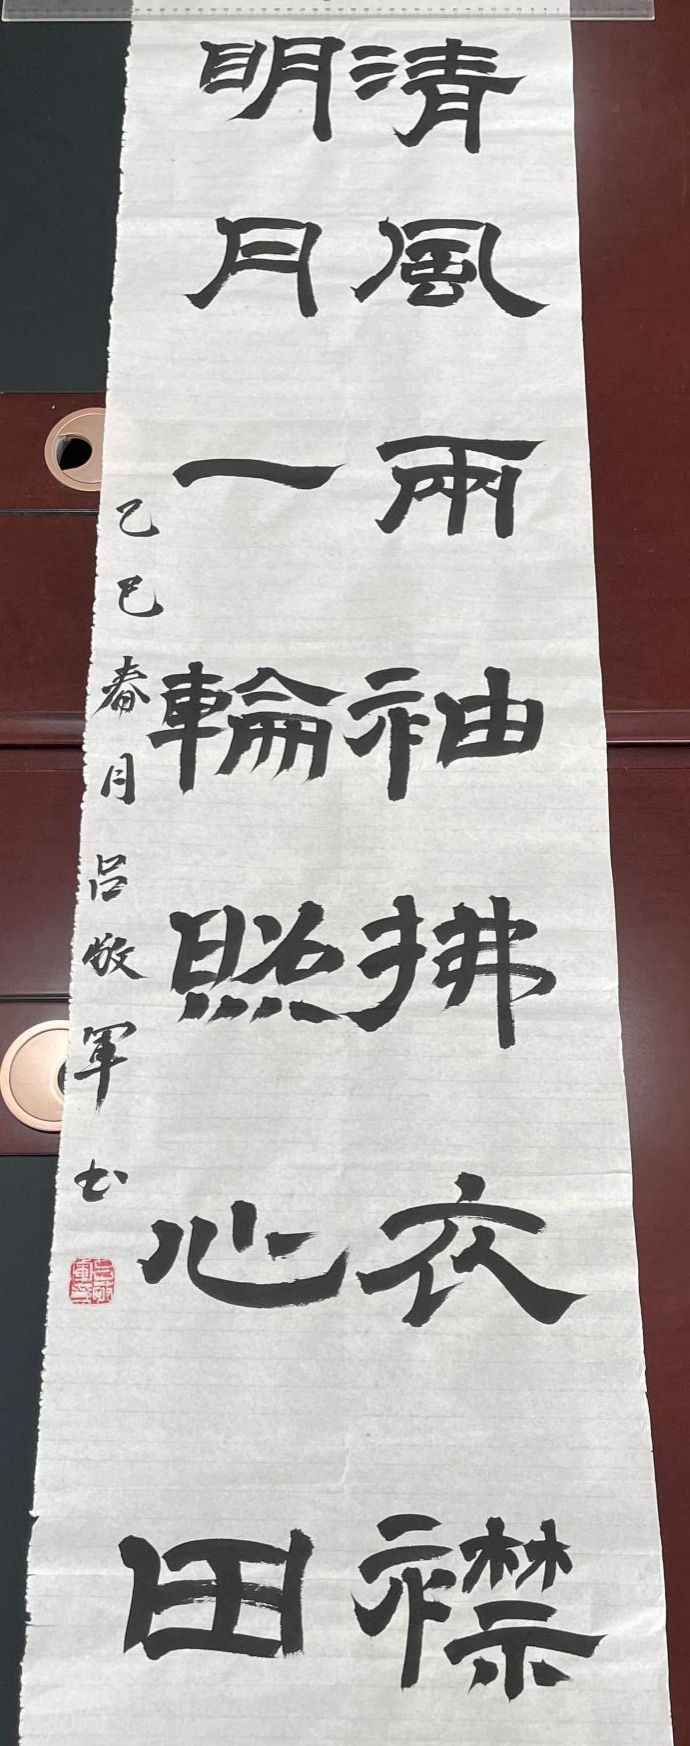 清風兩袖拂衣襟
明月一輪照心田
乙巳春月 吕敬軍书